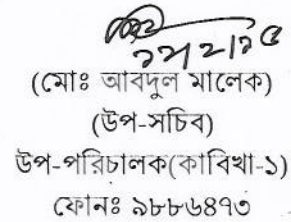 (মোঃ আবদুল মালেক)
(উপ-সচিব)
উপ-পরিচালক(কাবিখা-১)
ফোনঃ ৯৮৮৬৪৭৩